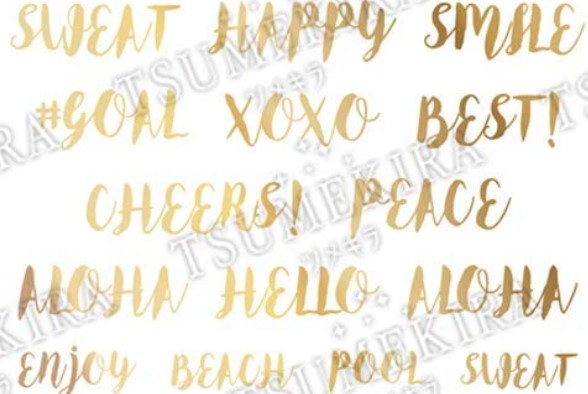 SWEAT HAPPY SMILE
#GOAL XOXO BEST!
CHEERS! PEACE
ALOHA HELLO ALOHA
enjoy BEACH POOL SWEAT
TSUMEKIRA
ツメキラ
TSUMEKIRA
ツメキラ
TSUMEKIRA